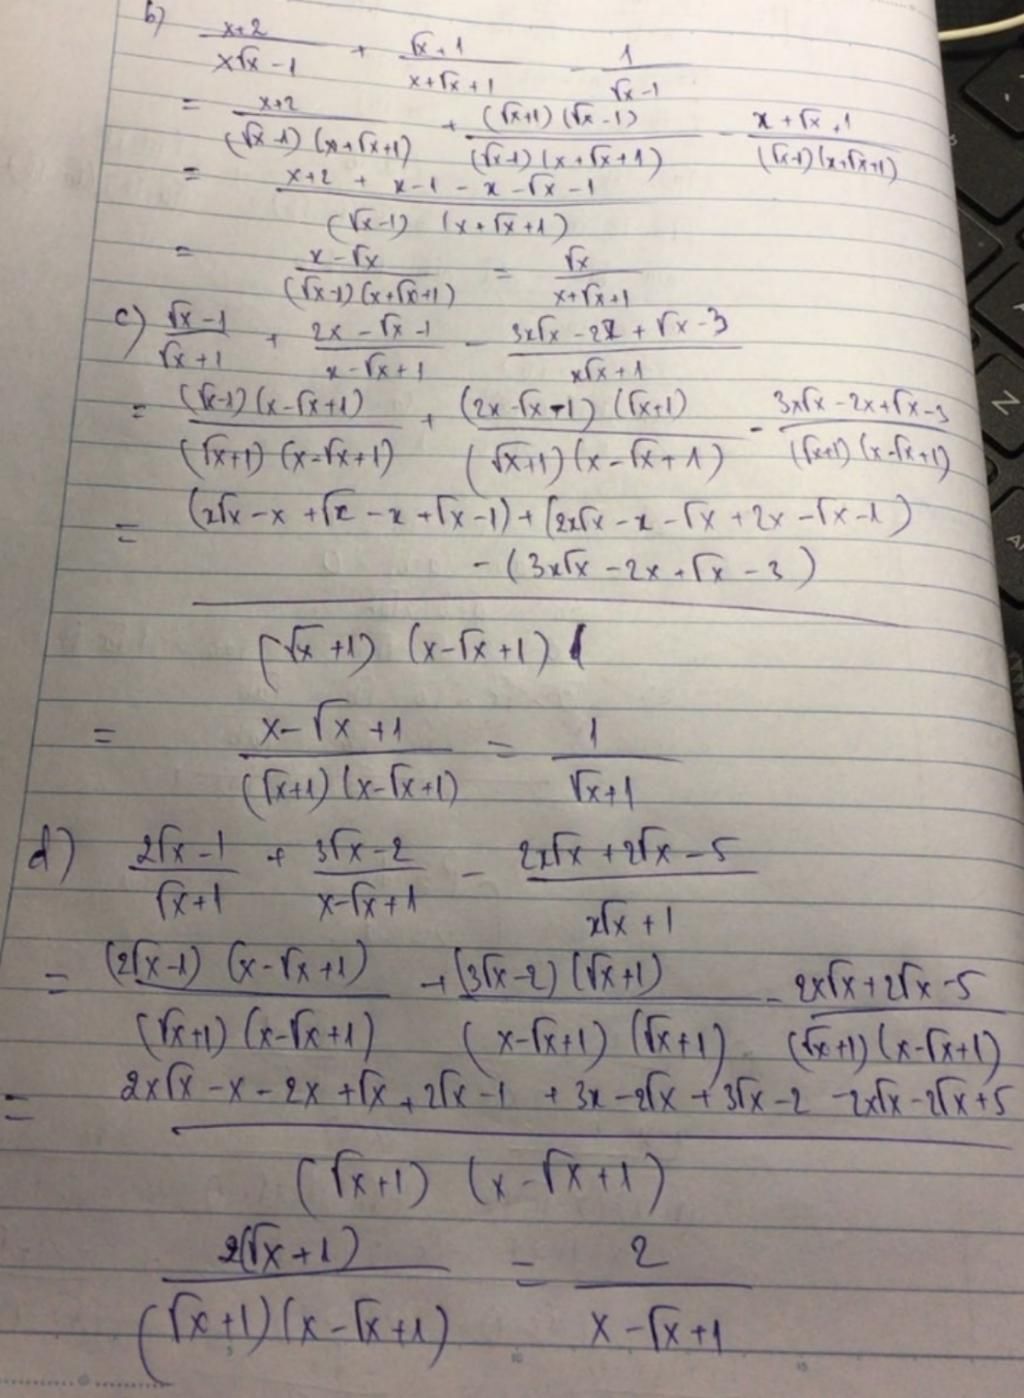 b) (x+2)/(x√x - 1) + (√x+1)/(x+√x+1) - 1/(√x-1)
= (x+2)/((√x-1)(x+√x+1)) + ((√x+1)(√x-1))/((√x-1)(x+√x+1)) - (x+√x+1)/((√x-1)(x+√x+1))
= (x+2 + x-1 - x-√x-1)/((√x-1)(x+√x+1))
= (x-√x)/((√x-1)(x+√x+1)) = √x/(x+√x+1)
c) (√x-1)/(√x+1) + (2x-√x-1)/(x-√x+1) - (3x√x-2x+√x-3)/(x√x+1)
= ((√x-1)(x-√x+1))/((√x+1)(x-√x+1)) + ((2x-√x-1)(√x+1))/((√x+1)(x-√x+1)) - (3x√x-2x+√x-3)/((√x+1)(x-√x+1))
= (x√x-x+√x-x+√x-1)+(2x√x-x-√x+2x-√x-1)
-(3x√x-2x+√x-3)
(√x+1)(x-√x+1)
= (x-√x+1)/((√x+1)(x-√x+1)) = 1/(√x+1)
d) (2√x-1)/(√x+1) + (3√x-2)/(x-√x+1) - (2x√x+2√x-5)/(x√x+1)
= ((2√x-1)(x-√x+1))/((√x+1)(x-√x+1)) + ((3√x-2)(√x+1))/((x-√x+1)(√x+1)) - (2x√x+2√x-5)/((√x+1)(x-√x+1))
= (2x√x-x-2x+√x+2√x-1+3x-2√x+3√x-2-2x√x-2√x+5)/((√x+1)(x-√x+1))
(2(√x+1))/((√x+1)(x-√x+1)) = 2/(x-√x+1)